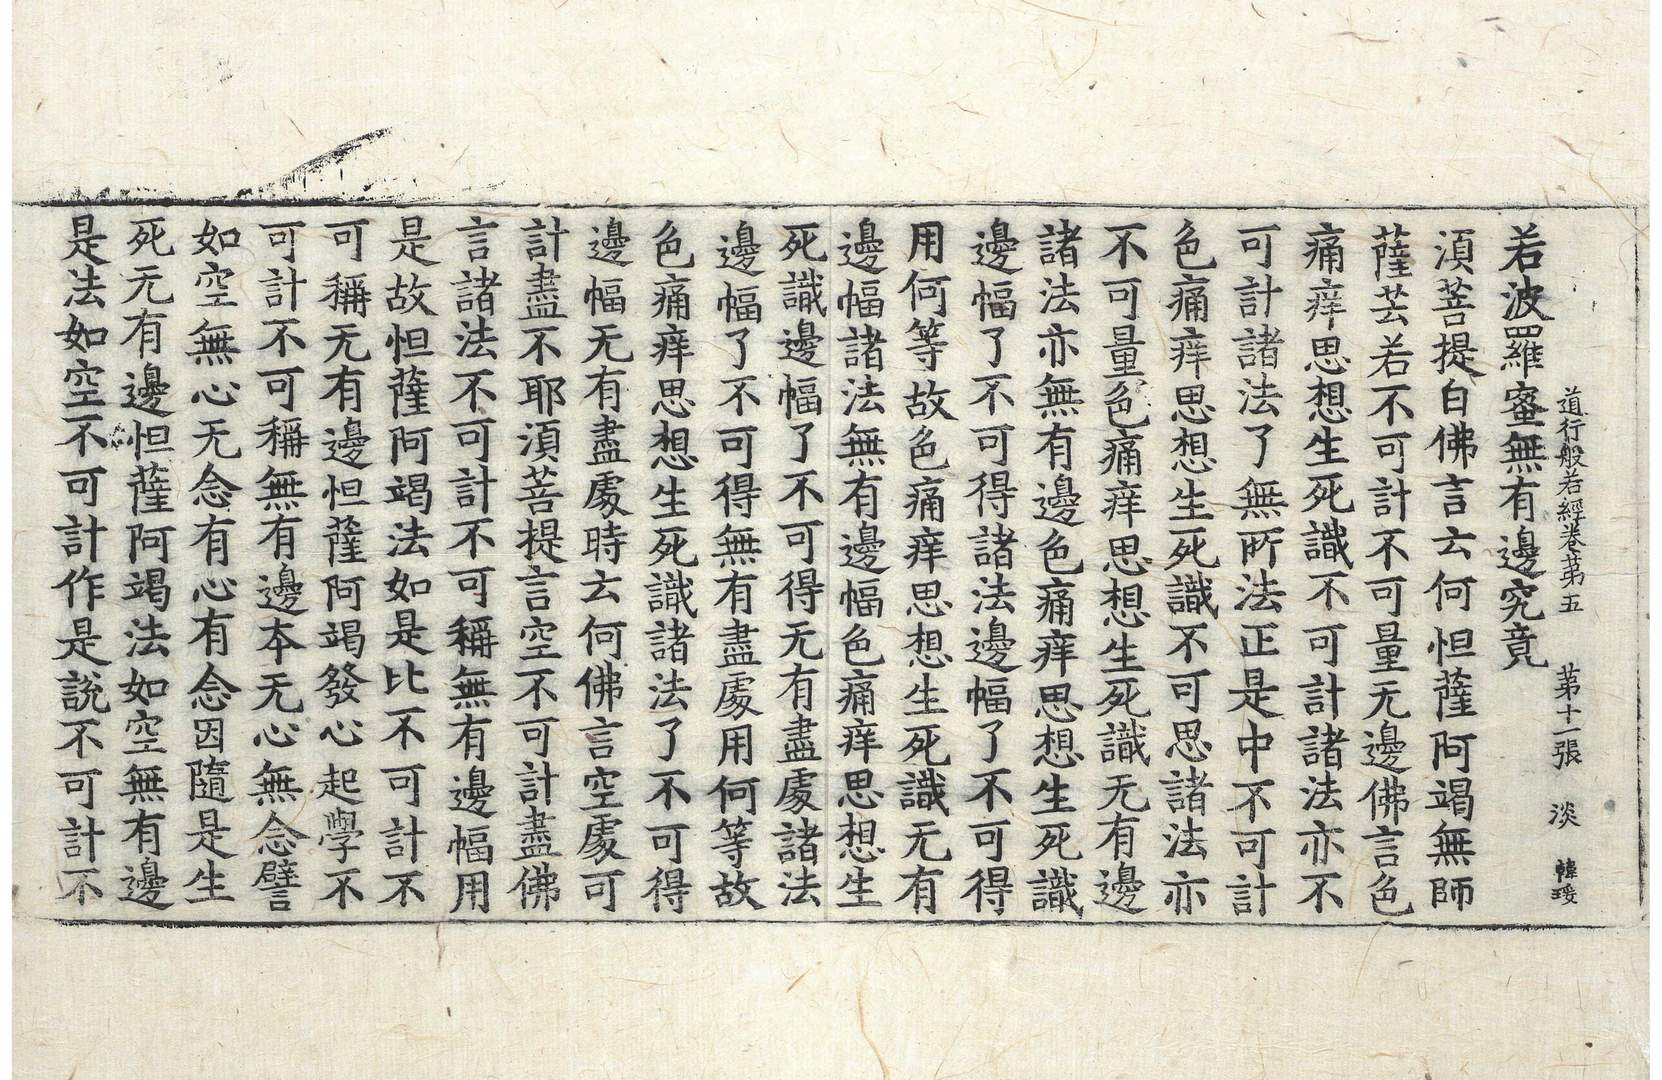 道行般若經卷苐五 苐十一張 淡 韓琰
若波羅蜜無有邊究竟
湏菩提白佛言云何怛薩阿竭無師
薩芸若不可計不可量无邊佛言色
痛痒思想生死識不可計諸法亦不
可計諸法了無所法正是中不可計
色痛痒思想生死識不可思諸法亦
不可量色痛痒思想生死識无有邊
諸法亦無有邊色痛痒思想生死識
邊幅了不可得諸法邊幅了不可得
用何等故色痛痒思想生死識无有
邊幅諸法無有邊幅色痛痒思想生
死識邊幅了不可得无有盡處諸法
邊幅了不可得無有盡處用何等故
色痛痒思想生死識諸法了不可得
邊幅无有盡處時云何佛言空處可
計盡不耶湏菩提言空不可計盡佛
言諸法不可計不可稱無有邊幅用
是故怛薩阿竭法如是比不可計不
可稱无有邊怛薩阿竭發心起學不
可計不可稱無有邊本无心無念譬
如空無心无念有心有念因隨是生
死无有邊怛薩阿竭法如空無有邊
是法如空不可計作是說不可計不